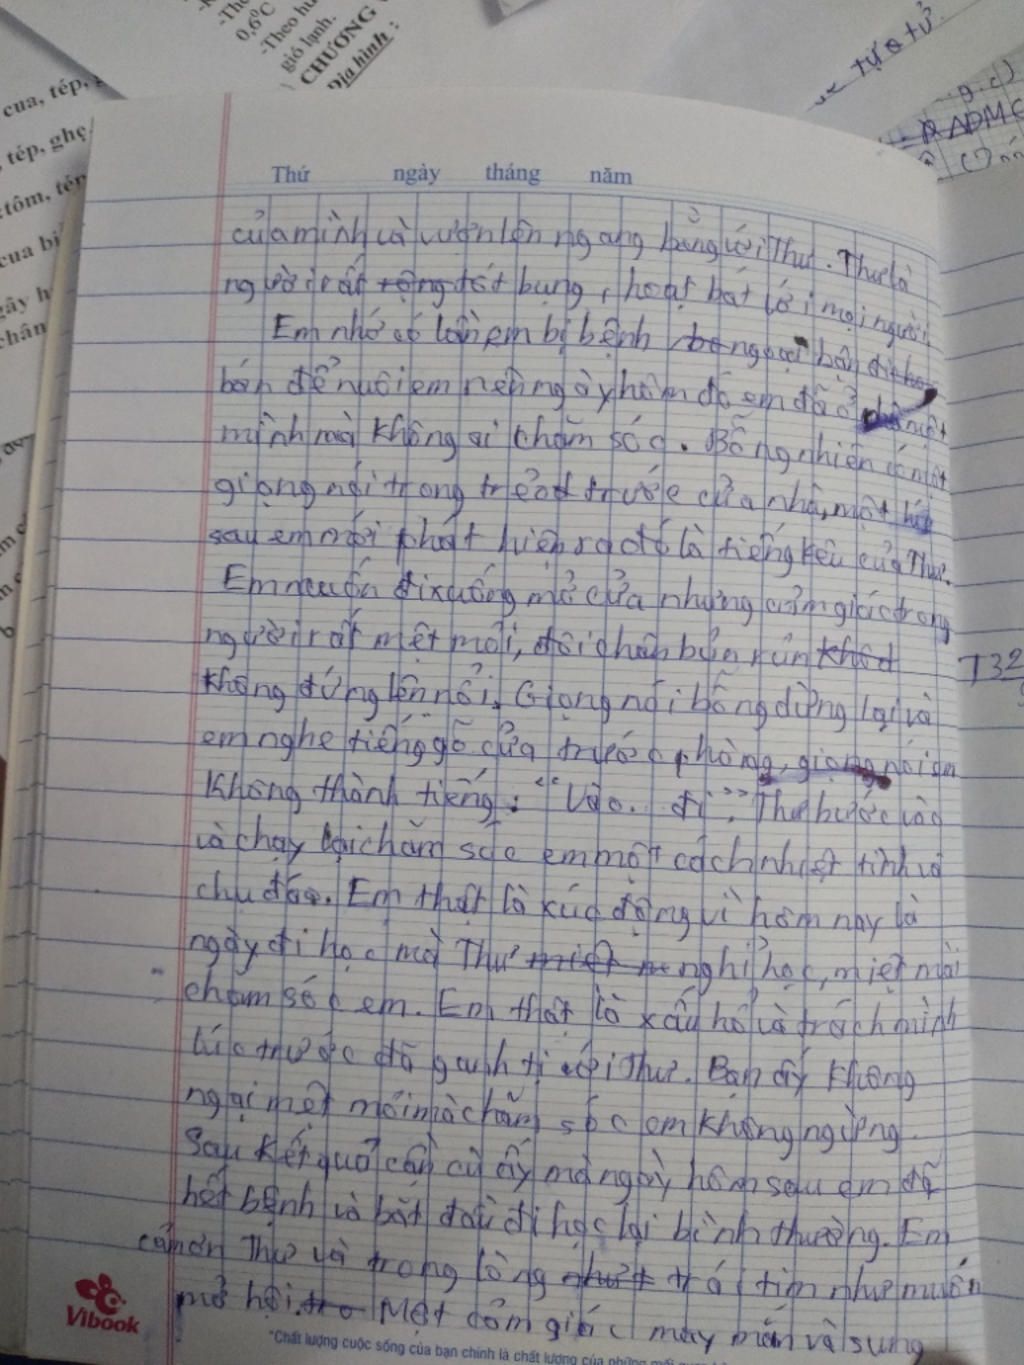 -Theo hư
0,6°C
gió lạnh.
CHƯƠNG
Địa hình :
cua, tép,
tép, ghẹ
tôm, tép
cua bi
gây h
chân
tự θ tử
ADMC
T32
Thứ ngày tháng năm
của mình và vươn lên ngang bằng với Thư. Thư là
người rất rộng tốt bụng, hoạt bát với mọi người.
Em nhớ có lần em bị bệnh ngoại bận đi
bán để nuôi em nên ngày hôm đó em đã ở một
mình mà không ai chăm sóc. Bỗng nhiên có một
giọng nói trong trẻo trước cửa nhà, một lúc
sau em mới phát hiện ra đó là tiếng kêu của Thư.
Em muốn đi xuống mở cửa nhưng cảm giác trong
người rất mệt mỏi, đôi chân bủn rủn
không đứng lên nổi. Giọng nói bỗng dừng lại và
em nghe tiếng gõ cửa trước phòng, giọng nói em
không thành tiếng: "Vào.. đi". Thư bước vào
và chạy lại chăm sóc em một cách nhiệt tình và
chu đáo. Em thật là xúc động vì hôm nay là
ngày đi học mà Thư miệt m nghỉ học, miệt mài
chăm sóc em. Em thật là xấu hổ và trách mình
lúc trước đã ganh tị với Thư. Bạn ấy không
ngại mệt mỏi mà chăm sóc em không ngừng.
Sau kết quả cần cù ấy mà ngày hôm sau em đã
hết bệnh và bắt đầu đi học lại bình thường. Em
cảm ơn Thư và trong lòng như t trái tim như muốn
mở hội. tro Một cảm giác may mắn và sung
Vibook
"Chất lượng cuộc sống của bạn chính là chất lượng của những mối quan hệ